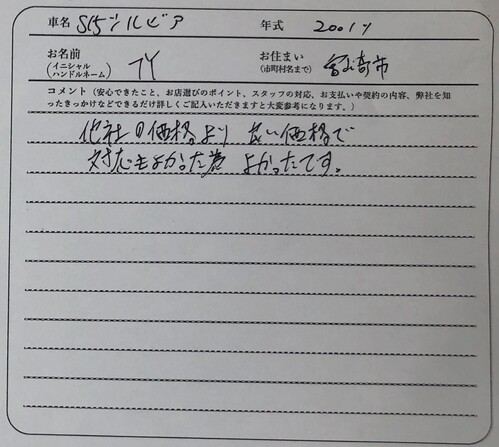 車名 S15シルビア 年式 2001y
お名前 (イニシャル ハンドルネーム) TY お住まい (市町村名まで)
コメント（安心できたこと、お店選びのポイント、スタッフの対応、お支払いや契約の内容、弊社を知
ったきっかけなどできるだけ詳しくご記入いただきますと大変参考になります。）
他社の価格より良い価格で
対応もよかった為 よかったです。